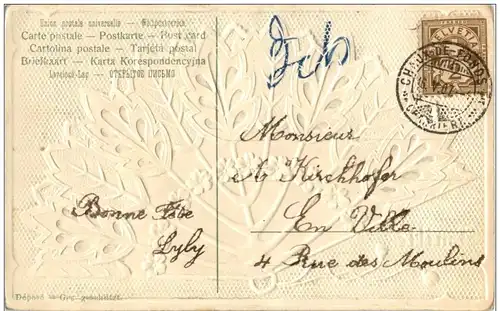 Union postale universelle — Weltpostverein
Carte postale — Postkarte — Post card
Cartolina postale — Tarjeta postal
Briefkaart — Karta Korespondencyjna
Levelező-Lap — ОТКРЫТОЕ ПИСЬМО
HELVETIA
CHAUX-DE-FONDS
Monsieur
A. Kirchhofer
En Ville
4 Rue des Moulins
Bonne Fête
Lyly
Déposé — Ges. geschützt.